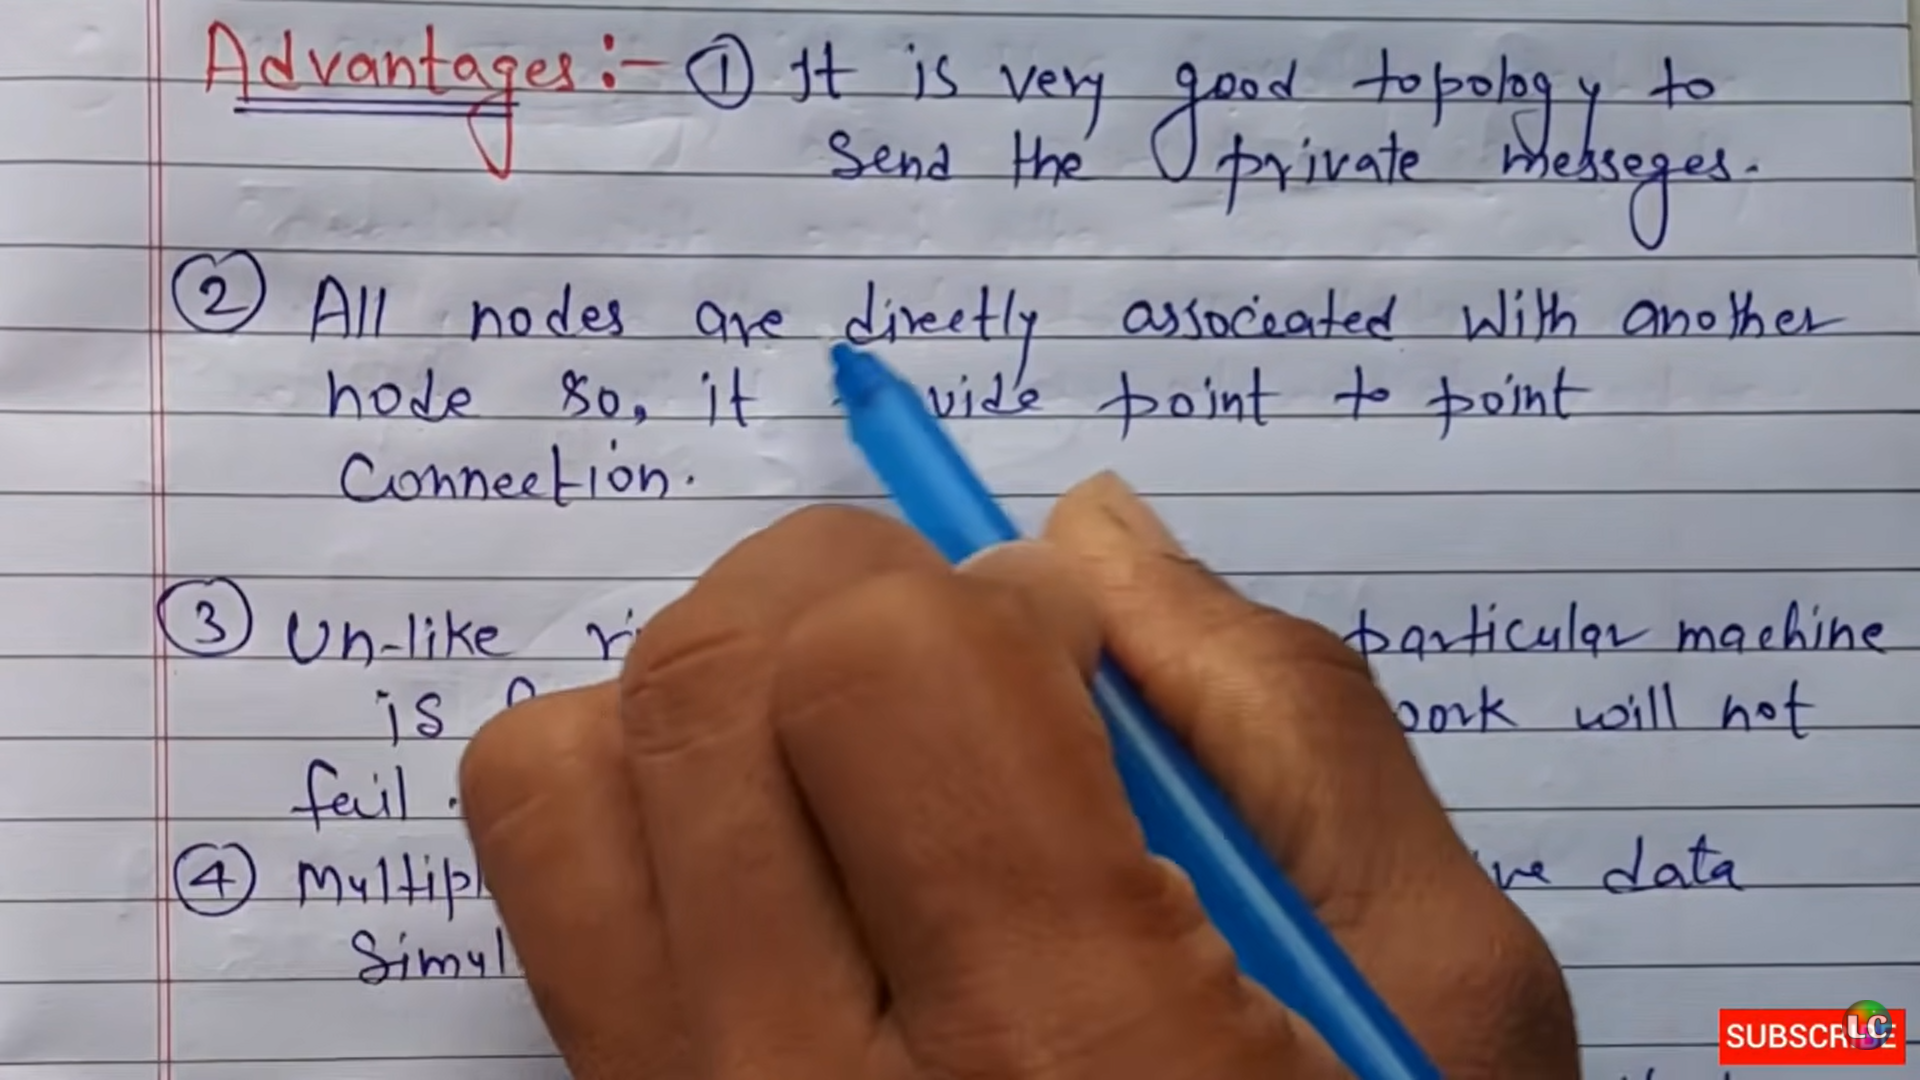 Advantages:- ① It is very good topology to
Send the private messeges.
② All nodes are directly associated with another
node so, it point to point
Connection.
③ Un-like particular machine
is will not
fail.
④ data
SUBSCRIBE